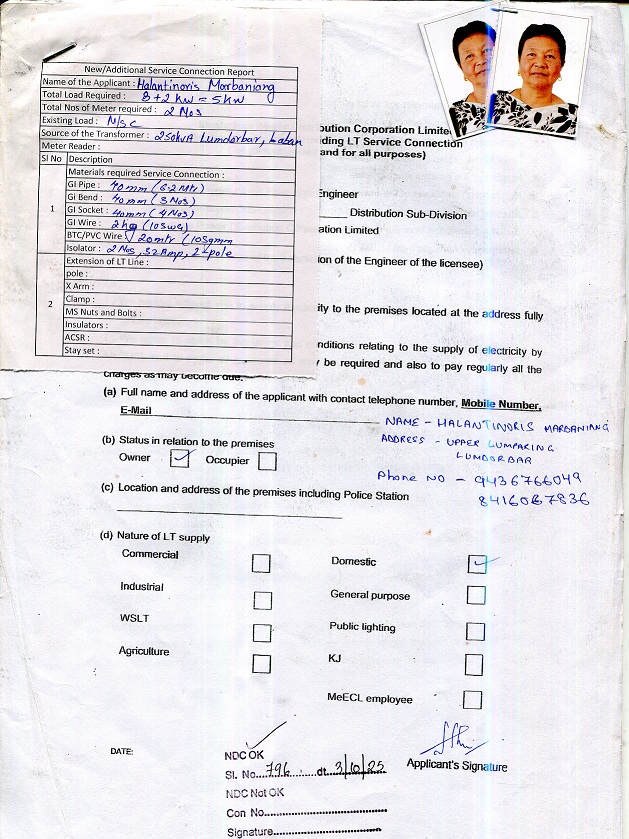 New/Additional Service Connection Report
Name of the Applicant : Halantinoris Marbaniang
Total Load Required : 3+2 kW = 5kW
Total Nos of Meter required : 2 Nos
Existing Load : N/SC
Source of the Transformer : 250kVA Lumdorbar, Laban
Meter Reader :
Sl No Description
Materials required Service Connection :
1
GI Pipe : 40mm (6.2 Mtr)
GI Bend : 40mm (3 Nos)
GI Socket : 40mm (4 Nos)
GI Wire : 2kg (10swg)
BTC/PVC Wire 20mtr (10Sqmm
Isolator : 2 Nos, 32 Amp, 2-pole
2
Extension of LT Line :
pole :
X Arm :
Clamp :
MS Nuts and Bolts :
Insulators :
ACSR :
Stay set :
bution Corporation Limited
ding LT Service Connection
and for all purposes)
Engineer
Distribution Sub-Division
ation Limited
ion of the Engineer of the licensee)
ity to the premises located at the address fully
nditions relating to the supply of electricity by
be required and also to pay regularly all the
charges as may become due.
(a) Full name and address of the applicant with contact telephone number, Mobile Number,
E-Mail
NAME - HALANTINORIS MARBANIANG
ADDRESS - UPPER LUMPARING
LUMDORBAR
Phone NO - 9436766049
(b) Status in relation to the premises
Owner Occupier
(c) Location and address of the premises including Police Station
(d) Nature of LT supply
Commercial Domestic
Industrial General purpose
WSLT Public lighting
Agriculture KJ
MeECL employee
DATE:
Applicant's Signature
NDC OK
Sl. No....796....dt.3/10/25
NDC Not OK
Con No.
Signature